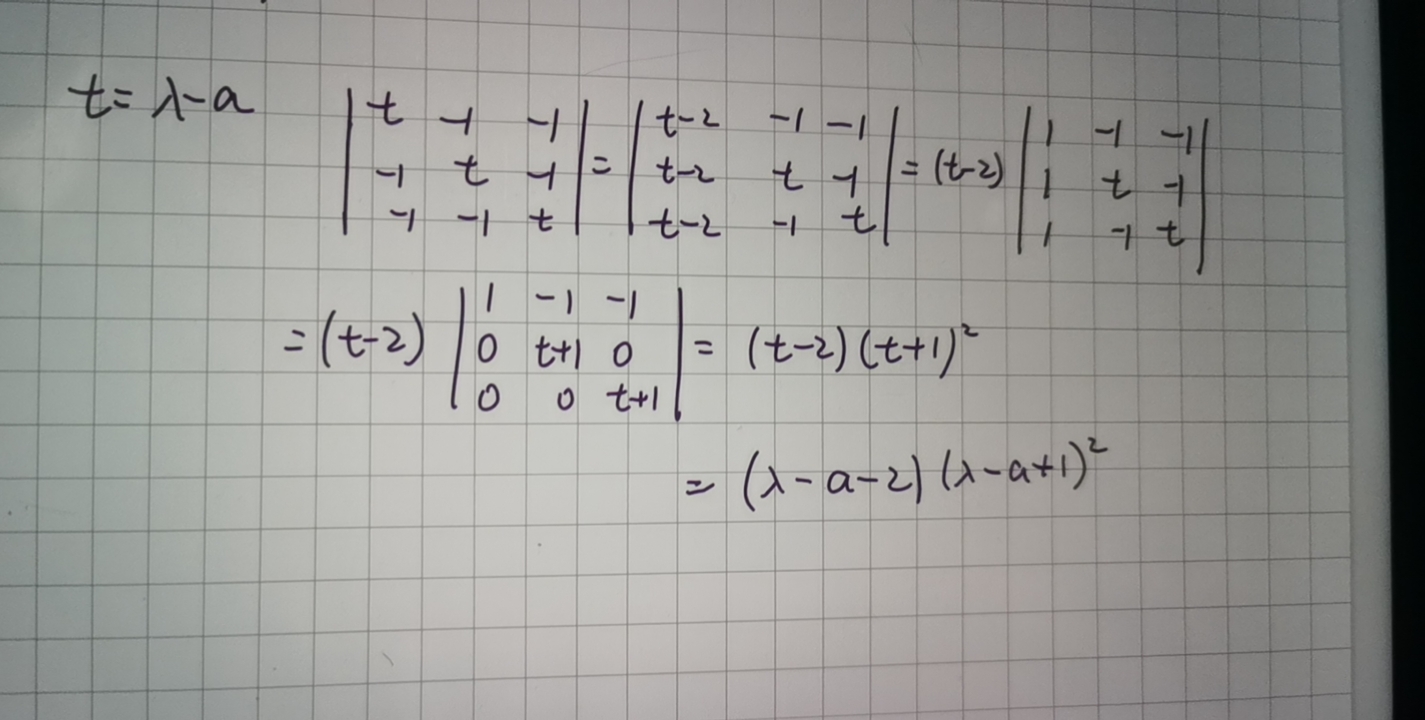 t=λ-a |t -1 -1; -1 t -1; -1 -1 t| = |t-2 -1 -1; t-2 t -1; t-2 -1 t| = (t-2) |1 -1 -1; 1 t -1; 1 -1 t|
=(t-2) |1 -1 -1; 0 t+1 0; 0 0 t+1| = (t-2)(t+1)²
= (λ-a-2)(λ-a+1)²